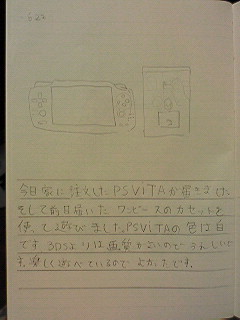 今日家に注文したPSVITAが届きました
そして前日届いたワンピースのカセットを
使って遊びました。PSVITAの色は白
です3DSよりは画質がよいのでうれしいで
す。楽しく遊べているのでよかったです。